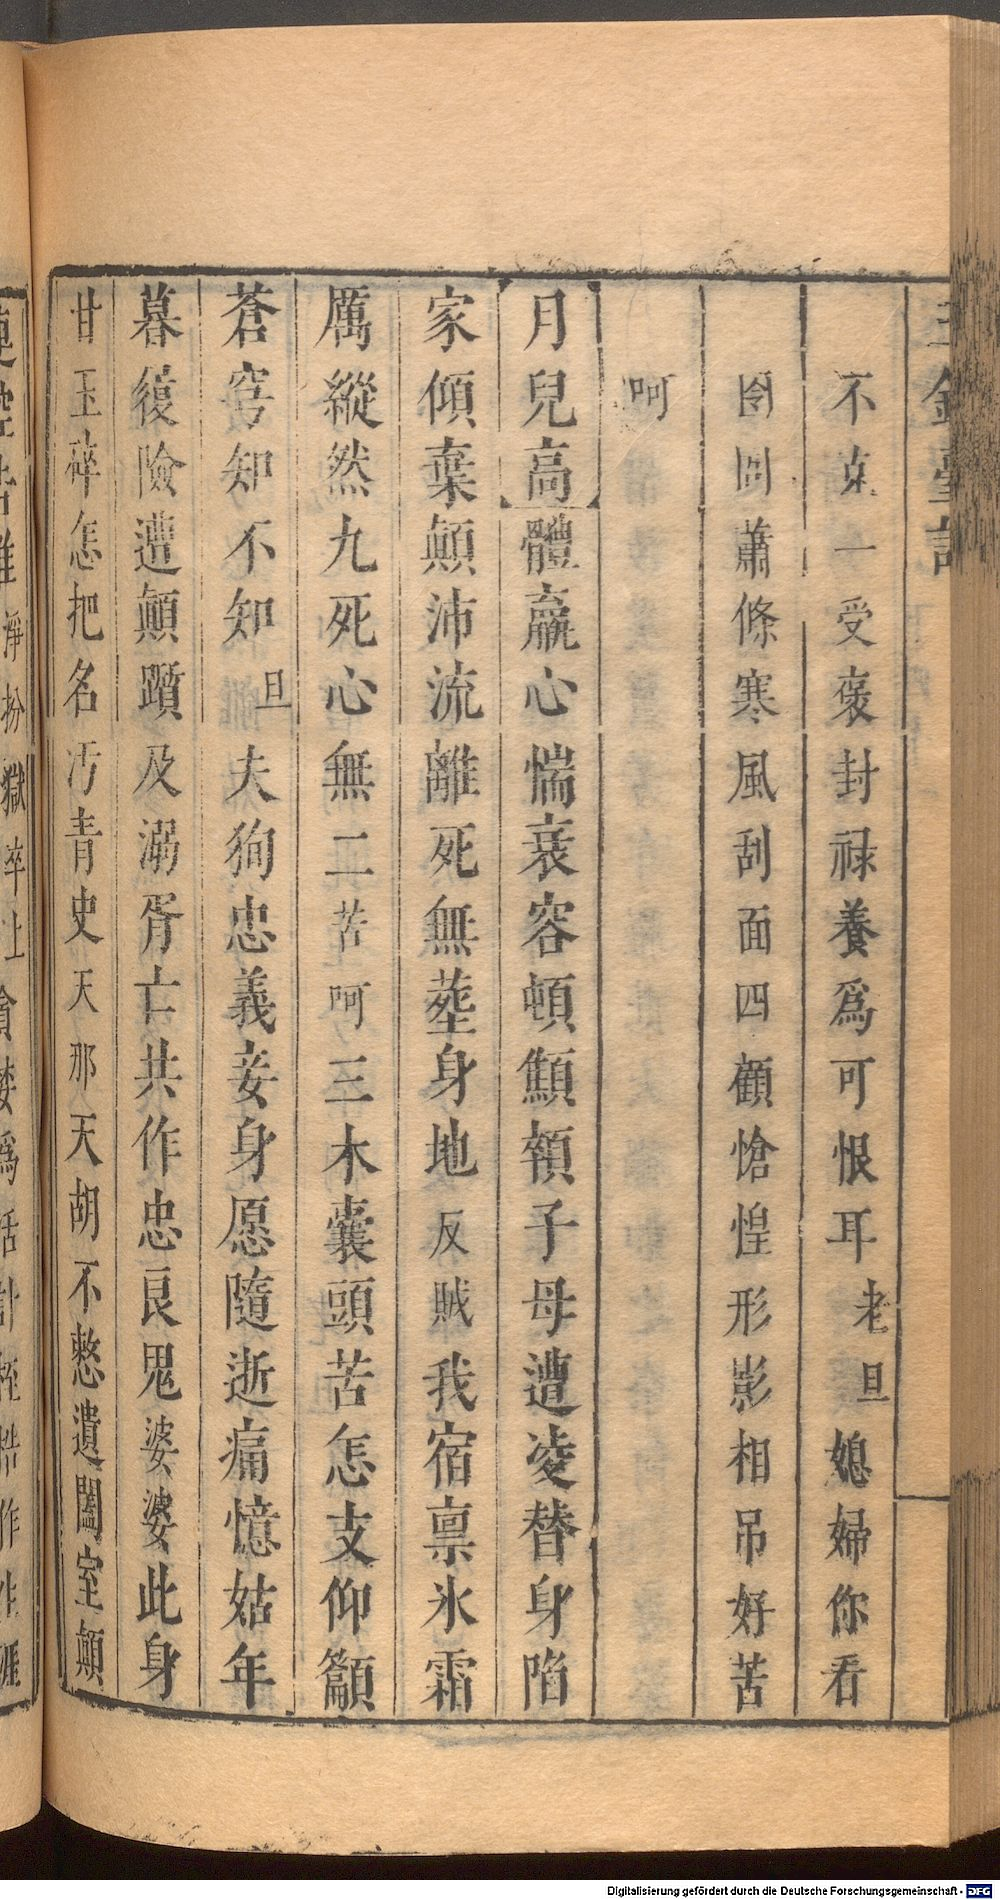 不克一受褒封禄養爲可恨耳老旦媳婦你看
囹圄蕭條寒風刮面四顧愴惶形影相吊好苦
呵
月兒高體羸心惴衰容頓顦顇子母遭凌替身陷
家傾棄顛沛流離死無塟身地反賊我宿禀氷霜
厲縱然九死心無二苦呵三木囊頭苦怎支仰籲
蒼穹知不知旦夫狥忠義妾身愿隨逝痛憶姑年
暮復險遭顛躓及溺胥亡共作忠良鬼婆婆此身
甘玉碎怎把名汚青史天那天胡不憖遺闔室顛
淨扮獄卒上
爲活計桎梏作生涯
Digitalisierung gefördert durch die Deutsche Forschungsgemeinschaft - DFG